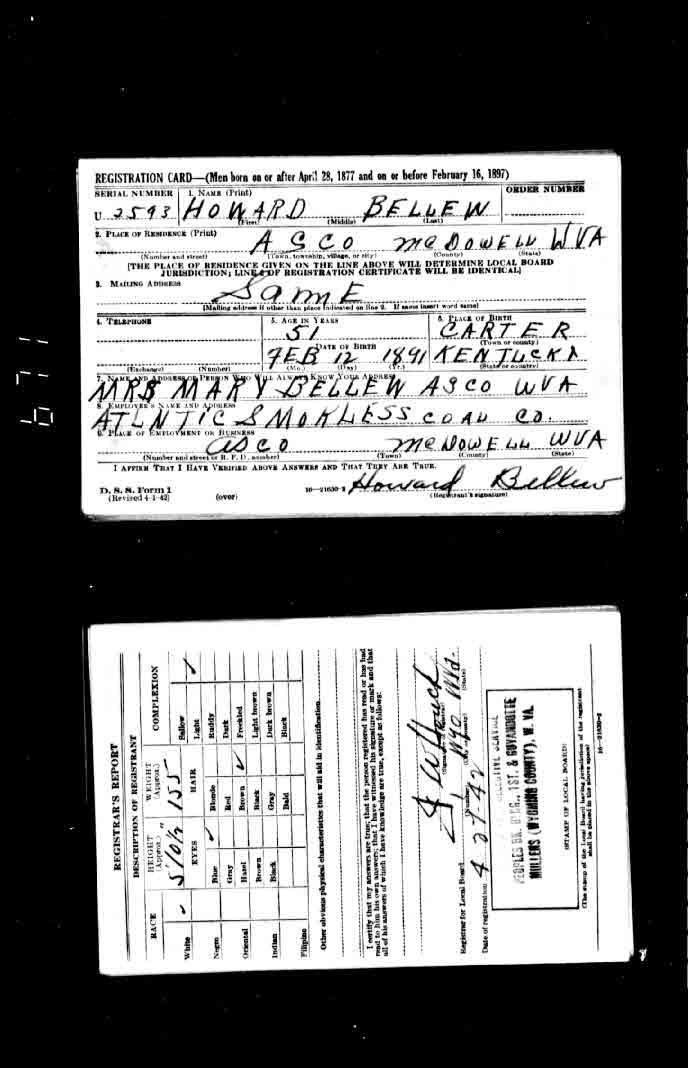 REGISTRATION CARD—(Men born on or after April 28, 1877 and on or before February 16, 1897)
SERIAL NUMBER 1. NAME (Print) ORDER NUMBER
U 2593 HOWARD BELLEW
(First) (Middle) (Last)
2. PLACE OF RESIDENCE (Print)
ASCO McDOWELL W VA
(Number and street) (Town, township, village, or city) (County) (State)
[THE PLACE OF RESIDENCE GIVEN ON THE LINE ABOVE WILL DETERMINE LOCAL BOARD
JURISDICTION; LINE 2 OF REGISTRATION CERTIFICATE WILL BE IDENTICAL]
3. MAILING ADDRESS
SamE
[Mailing address if other than place indicated on line 2. If same insert word same]
4. TELEPHONE 5. AGE IN YEARS 6. PLACE OF BIRTH
51 CARTER
DATE OF BIRTH (Town or county)
FEB 12 1891 KENTUCKY
(Exchange) (Number) (Mo.) (Day) (Yr.) (State or country)
7. NAME AND ADDRESS OF PERSON WHO WILL ALWAYS KNOW YOUR ADDRESS
MRS MARY BELLEW ASCO WVA
8. EMPLOYER'S NAME AND ADDRESS
ATLNTIC SMOKLESS COAL CO.
9. PLACE OF EMPLOYMENT OR BUSINESS
asco McDOWELL WVA
(Number and street or R. F. D. number) (Town) (County) (State)
I AFFIRM THAT I HAVE VERIFIED ABOVE ANSWERS AND THAT THEY ARE TRUE.
D. S. S. Form 1
(Revised 4-1-42) (over) 16—21630-2 Howard Bellew
(Registrant's signature)
1671
REGISTRAR'S REPORT
DESCRIPTION OF REGISTRANT
RACE HEIGHT (Approx.) WEIGHT (Approx.) COMPLEXION
5/10½ " 155
White ✓ Sallow
EYES HAIR Light ✓
Negro Blue ✓ Blonde Ruddy
Gray Red Dark
Oriental Hazel Brown ✓ Freckled
Brown Black Light brown
Indian Black Gray Dark brown
Bald Black
Filipino
Other obvious physical characteristics that will aid in identification
I certify that my answers are true; that the person registered has read or has had
read to him his own answers; that I have witnessed his signature or mark and that
all of his answers of which I have knowledge are true, except as follows:
(Signature of registrar)
Registrar for Local Board
(Number) (City or county) (State)
Date of registration 4 27-42
PEOPLES BK. B'LDG., 1ST. & GUYANDOTTE
MULLENS (WYOMING COUNTY), W. VA.
(STAMP OF LOCAL BOARD)
(The stamp of the Local Board having jurisdiction of the registrant
shall be placed in the above space)
16—21630-2